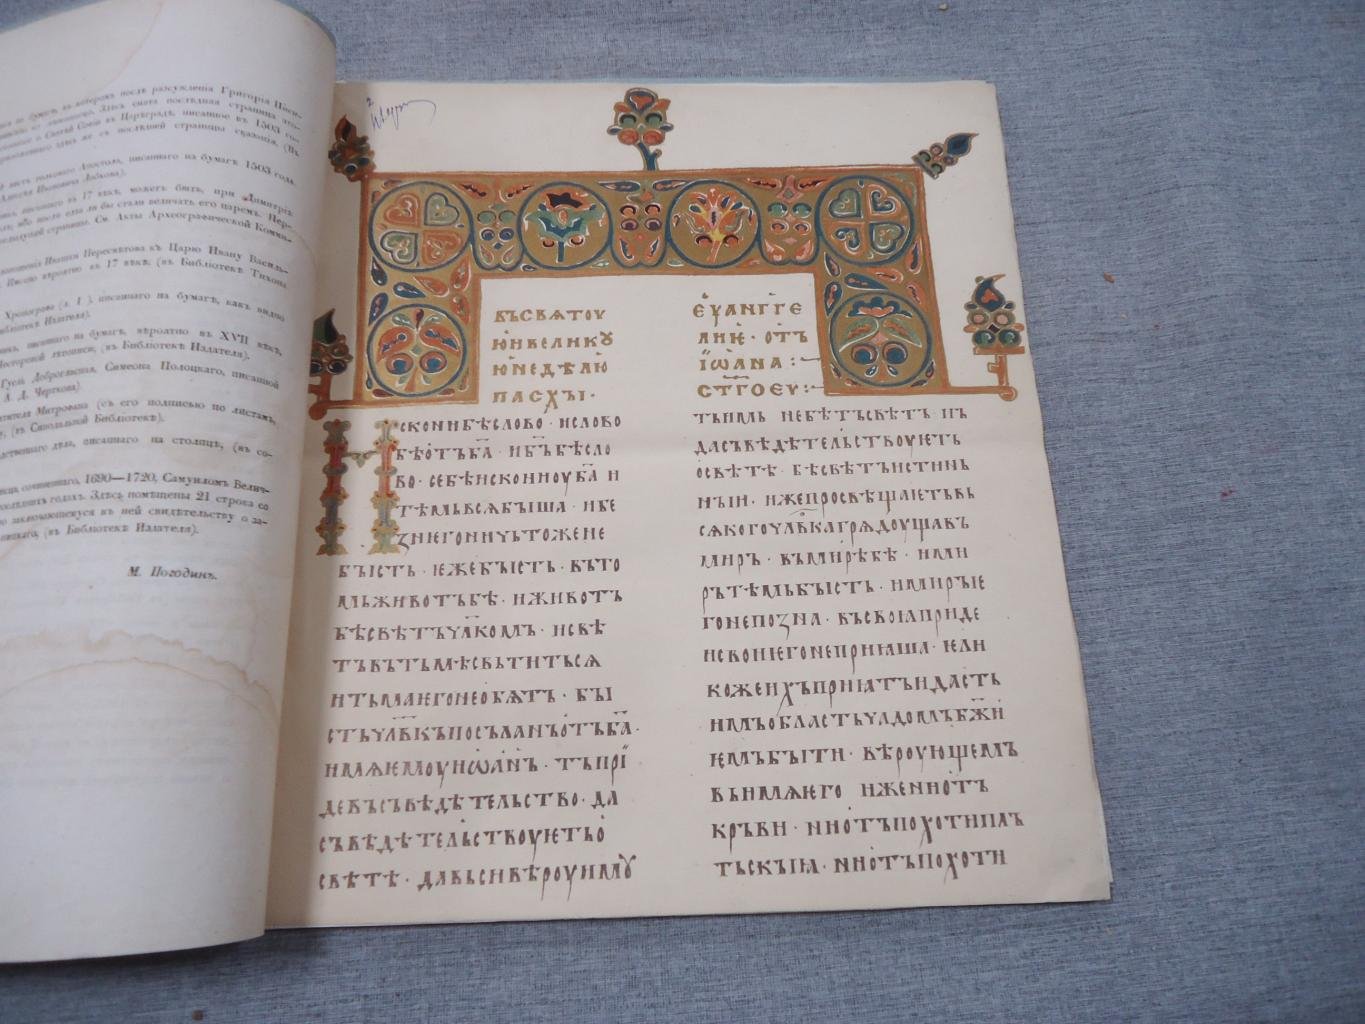 на бумагѣ, въ которомъ послѣ разсужденія Григорія
Здѣсь снята послѣдняя страница
о Святой Софіи въ Цареградѣ, писанное въ 1503
здѣсь же съ послѣдней страницы сказанія. (Въ
листъ толковаго Апостола, писаннаго на бумагѣ 1503 года.
Алексѣя Ивановича Лобкова).
писаннаго въ 17 вѣкѣ, можетъ быть, при Димитріѣ
ибо послѣ едва ли бы стали величать его царемъ.
страницы. Св. Акты Археографической Комми-
Ивашки Пересвѣтова къ Царю Ивану Василь-
Писано вѣроятно въ 17 вѣкѣ, (въ Библіотекѣ Тихона
Хронографа (л. 1), писаннаго на бумагѣ, какъ видно
Библіотекѣ Издателя).
писаннаго на бумагѣ, вѣроятно въ XVII вѣкѣ,
Несторовой лѣтописи, (въ Библіотекѣ Издателя).
Гусли Доброгласныя, Симеона Полоцкаго, писанной
А. Д. Черткова).
Святителя Митрофана (съ его подписью по листамъ,
(въ Синодальной Библіотекѣ).
дѣла, писаннаго на столпцѣ, (въ со-
сочиненнаго, 1690—1720, Самуиломъ Велич-
послѣднихъ годахъ. Здѣсь помѣщены 21 строка со
заключающемуся въ ней свидѣтельству о за-
(въ Библіотекѣ Издателя).
М. Погодинъ.
ВЪСВѦТОУ
ЮИВЕЛИКꙊ
ЮНЕДѢЛЮ
ПАСХЫ ·
ЕѴАНГГЕ
ЛИѤ · ОТЪ
ІѠАНА :
СТГОЕУ :
Искони бѣ слово · и слово
бѣ отъ ба҃ · и бъ҃ бѣ сло
во · се бѣ искони оу ба҃ и
тѣмь всѧ быша · и бе
з него ничьтоже не
бысть · ѥже бысть · въ то
мь животъ бѣ · и живот
бѣ свѣтъ чл҃комъ · и свѣ
тъ въ тьмѣ свьтитьсѧ
и тьма ѥго не обѧтъ · бы
сть чл҃вкъ посъланъ отъ ба҃ ·
имѧ ѥмоу иѡанъ · тъ прі
де въ съвѣдѣтельство · да
съвѣдѣтельствоуѥть о
свѣтѣ · да вьси вѣроу имꙋ
тъ имь не бѣ тъ свѣтъ нъ
да съвѣдѣтельствоуѥть
о свѣтѣ · бѣ свѣтъ истинь
ныи · иже просвѣщаѥть вь
сѧкого чл҃вка грѧдоуща въ
миръ · въ мирѣ бѣ · и ми
ръ тѣмь бысть · и миръ ѥ
го не позна · въ своꙗ приде
и свои ѥго не приꙗша · ѥли
ко же ихъ приꙗтъ и дасть
имъ область чадомъ бж҃и
ѥмъ быти · вѣроующемъ
въ имѧ ѥго иже ни отъ
кръви · ни отъ похоти пл
тьскыꙗ · ни отъ похоти